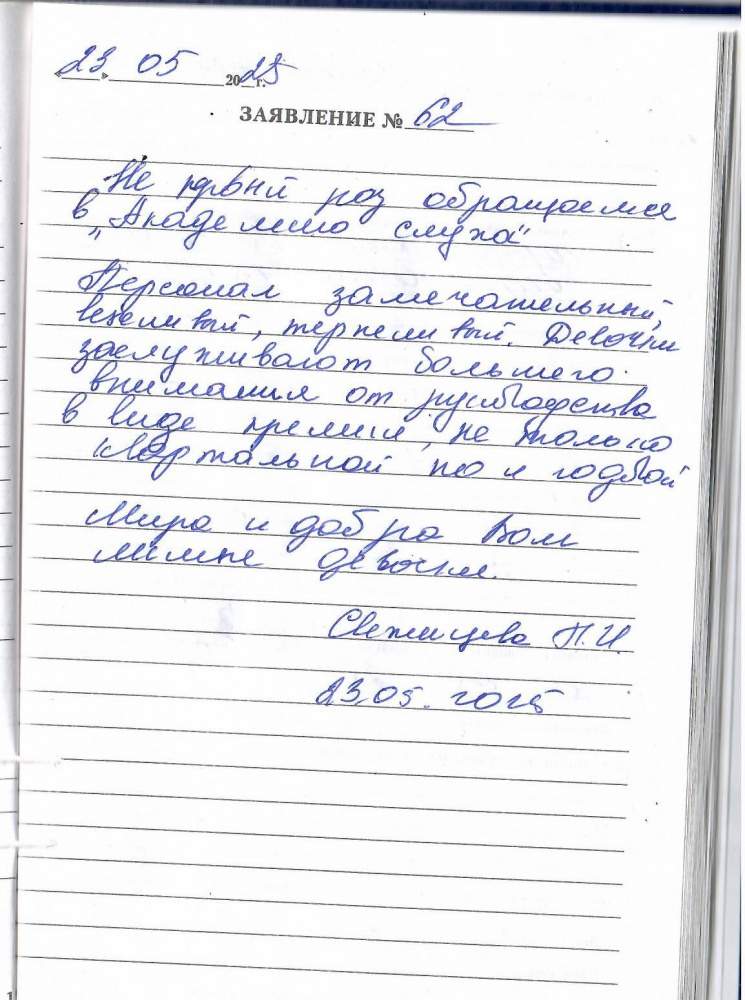 «23» 05 2025 г.
ЗАЯВЛЕНИЕ № 62
Не первый раз обращаемся
в „Академию слуха"
Персонал замечательный,
вежливый, терпеливый. Девочки
заслуживают большего
внимания от руководства
в виде премии, не только
квартальной но и годовой
Мира и добра Вам
милые девочки.
Свежинцева Н.И.
23.05.2025
1